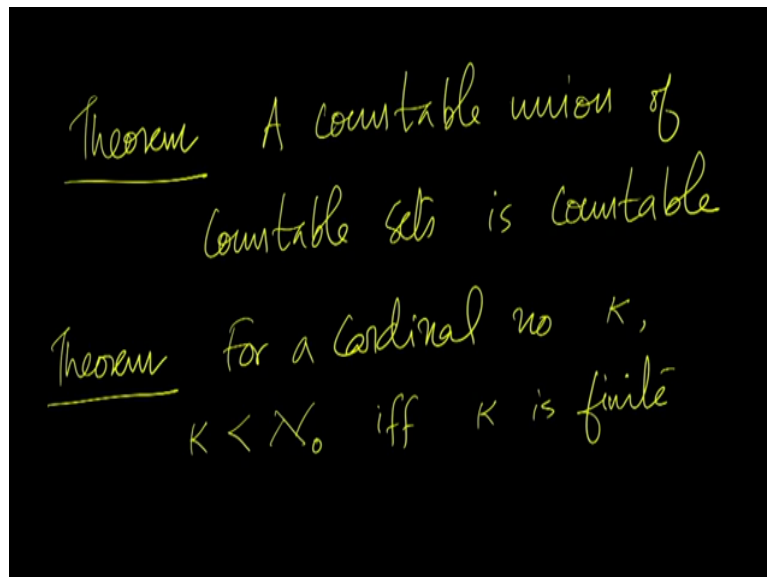 Theorem A countable union of
Countable sets is Countable
Theorem For a Cardinal no κ,
κ < ℵ₀ iff κ is finite